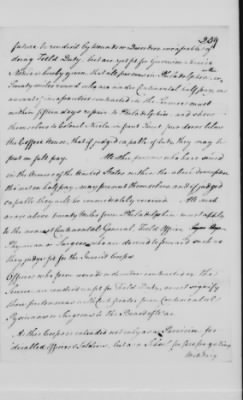 239
future be rendered by wounds or Disorders incapable of
doing Field Duty, but are yet fit for Garrison Service
Notice is hereby given that all persons in Philadelphia or within
Twenty miles round who are under Continental half pay, on
account of infirmities contracted in the Service must
within fifteen days repair to Philadelphia, and shew
themselves to Colonel Nicola in front Street just door below
the Coffee House, that if judged capable of duty, they may be
put on full pay. All other persons who have served
in the Armies of the United States within the above description
tho not on half pay, may present themselves and if judged
capable they will be immediately received. All such
as are above twenty miles from Philadelphia must apply
to the nearest Continental General, Field Officer
Physician or Surgeon who are desired to forward such as
they judge fit for the Invalid Corps
Officers who from wounds or disorders contracted in the
Service are rendered unfit for Field Duty, must signify
their pretensions with Certificates from Continental
Physicians or Surgeons to the Board of War.
As this Corps is intended not only as a Provision for
disabled Officers & Soldiers, but as a School for propagating
Military